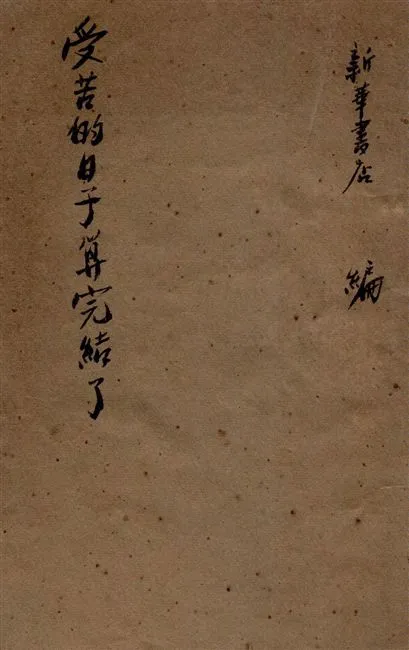 新華書店 編
受苦的日子算完結了